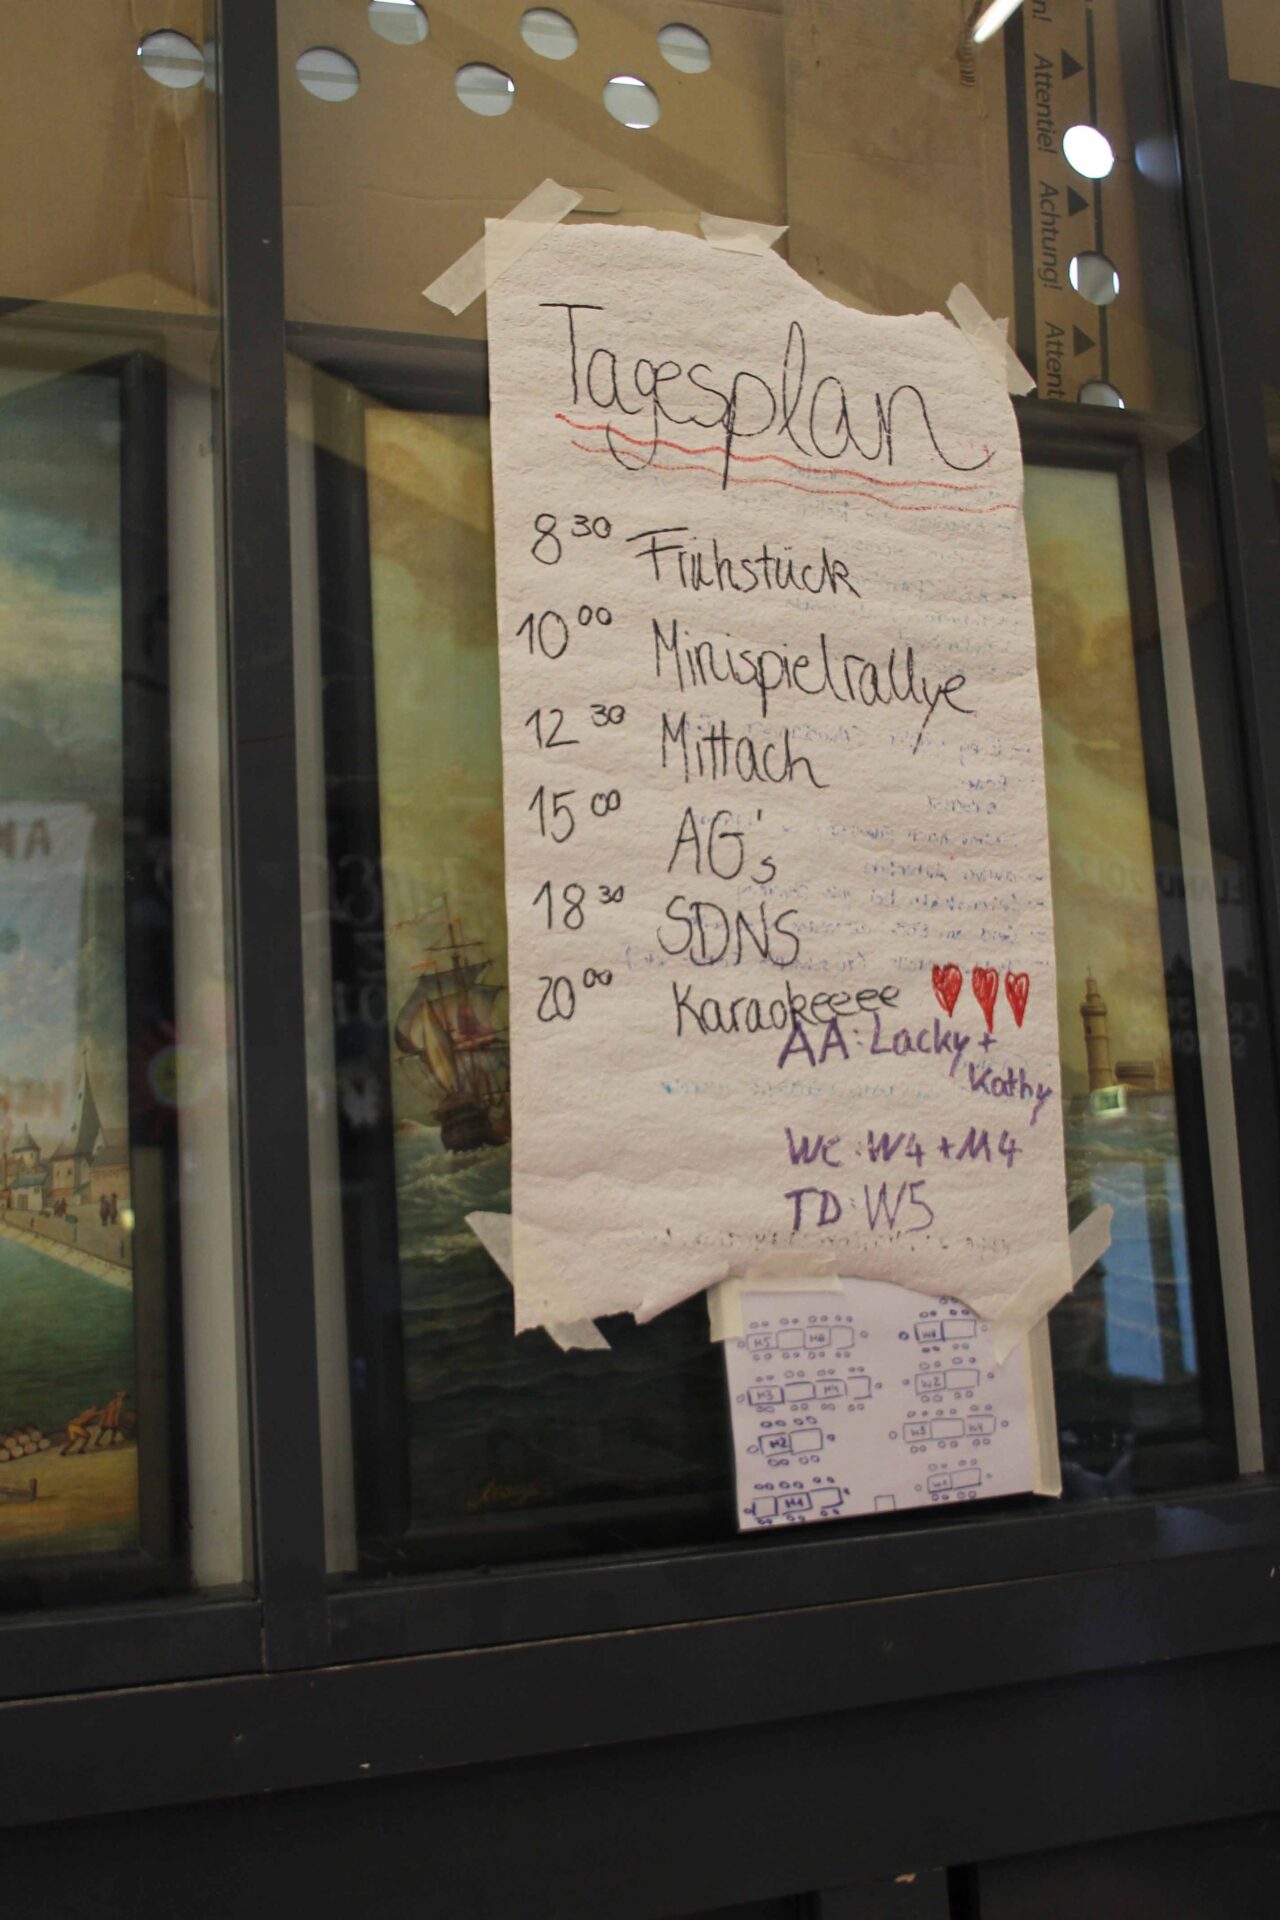 n!
Attentie!
Achtung!
Attent
Tagesplan
8 30 Frühstück
10 00 Minispielrallye
12 30 Mittach
15 00 AG's
18 30 SDNS
20 00 Karaokeeeee
AA: Lacky +
Kathy
WC: W4 + M4
TD: W5
M5
M3 M4
W2
M2
W5 W4
M1